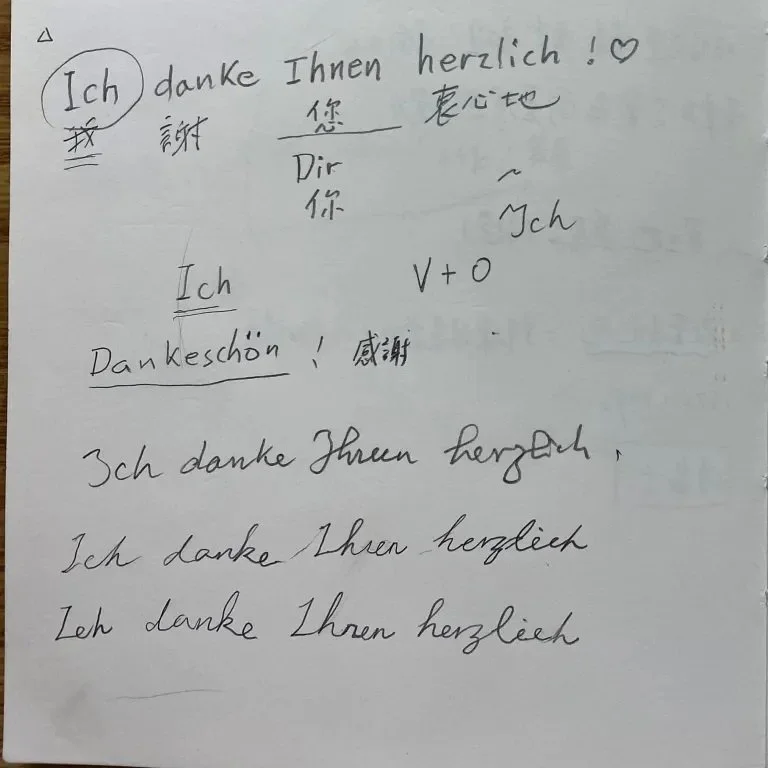 Ich danke Ihnen herzlich ! ♡
我 謝 您 衷心地
Dir
你
Ich
Ich V + O
Dankeschön ! 感謝
Ich danke Ihnen herzlich .
Ich danke Ihnen herzlich
Ich danke Ihnen herzlich